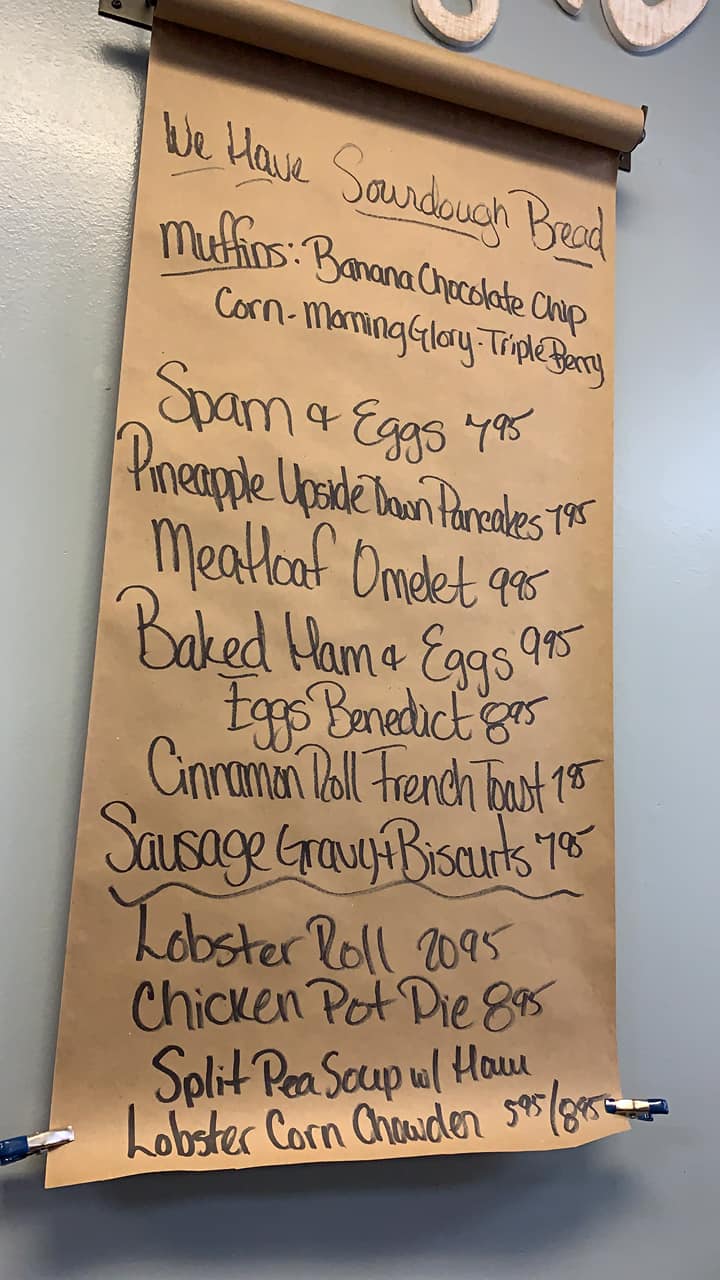 We Have Sourdough Bread
Muffins: Banana Chocolate Chip
Corn - Morning Glory - Triple Berry
Spam & Eggs 795
Pineapple Upside Down Pancakes 795
Meatloaf Omelet 995
Baked Ham & Eggs 995
Eggs Benedict 895
Cinnamon Roll French Toast 795
Sausage Gravy + Biscuits 795
Lobster Roll 2095
Chicken Pot Pie 895
Split Pea Soup w/ Ham
Lobster Corn Chowder 595/895